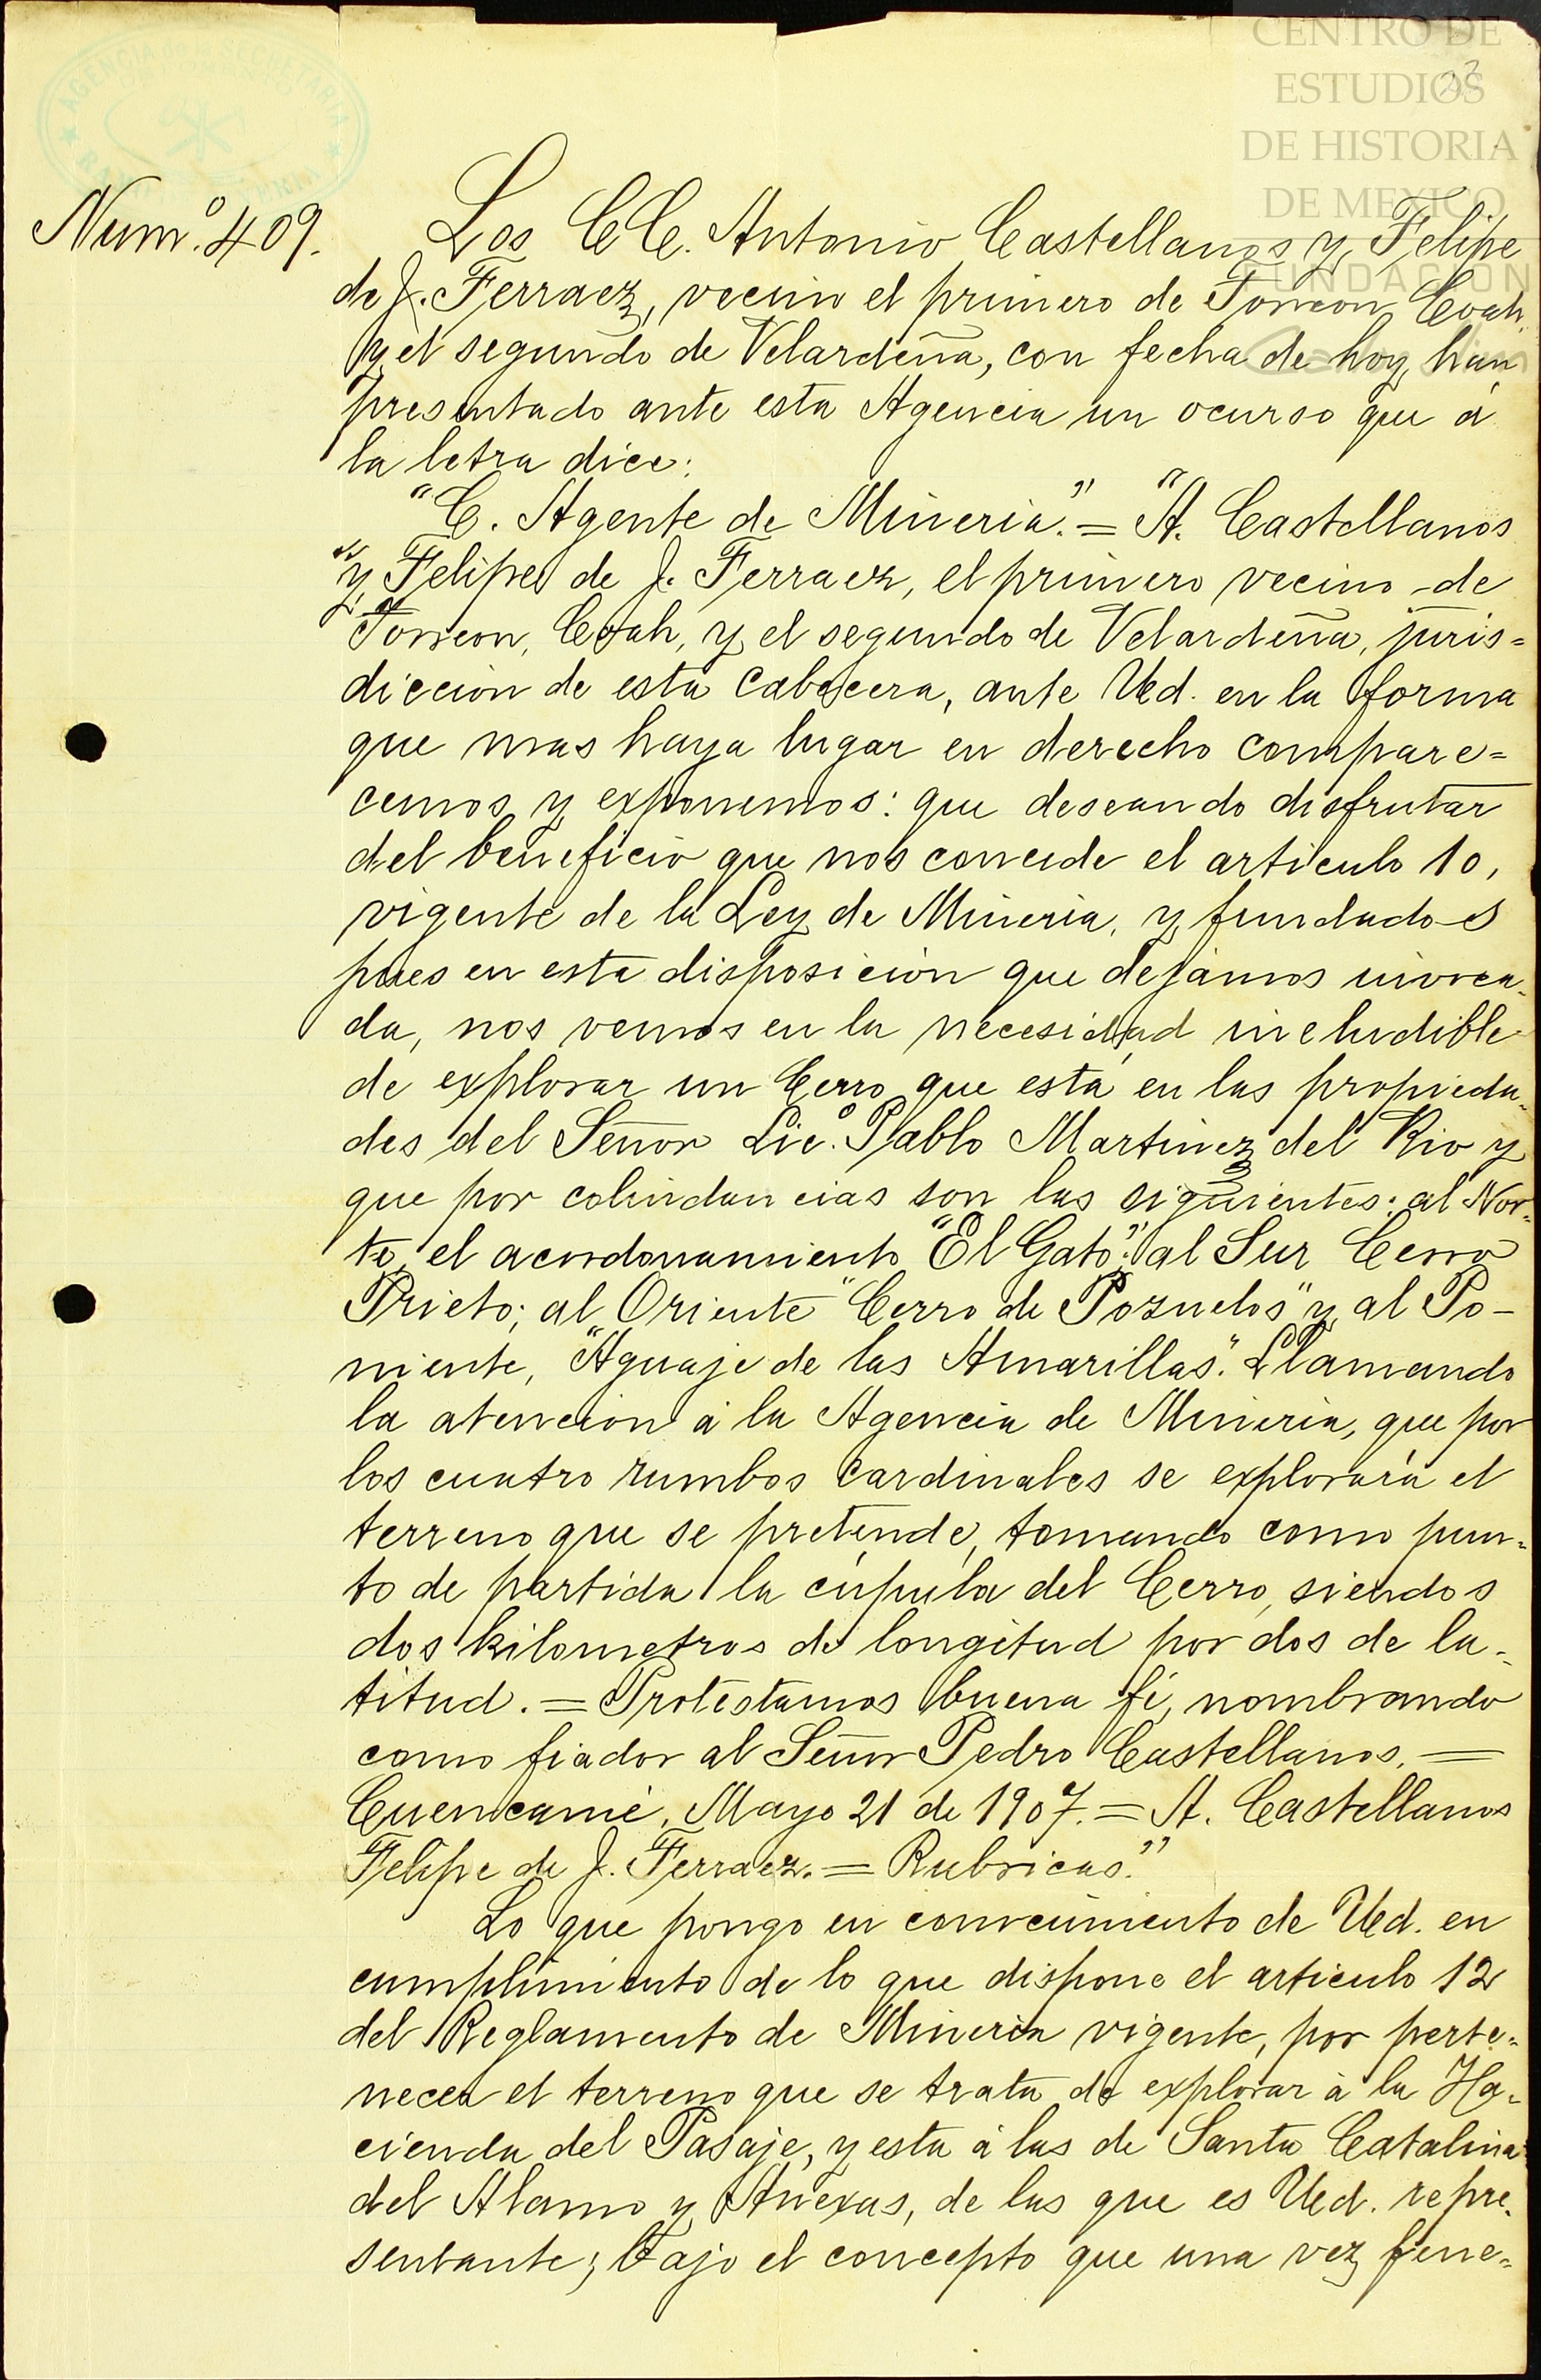 CENTRO DE
ESTUDIOS
DE HISTORIA
DE MEXICO
FUNDACION
AGENCIA de la SECRETARIA
23
Num.º 409.
Los CC. Antonio Castellanos y Felipe
de J. Ferraez, vecino el primero de Torreon Coah.
y el segundo de Velardeña, con fecha de hoy, han
presentado ante esta Agencia un ocurso que á
la letra dice:
"C. Agente de Mineria." = "A. Castellanos
"y Felipe de J. Ferraez, el primero vecino de
"Torreon, Coah, y el segundo de Velardeña, juris=
diccion de esta Cabecera, ante Ud. en la forma
que mas haya lugar en derecho compare=
cemos y exponemos: que deseando disfrutar
del beneficio que nos concede el articulo 10,
vigente de la Ley de Mineria, y fundados
pues en esta disposición que dejámos invoca-
da, nos vemos en la necesidad ineludible
de explorar un Cerro que está en las propieda-
des del Señor Lic.º Pablo Martinez del Rio y
que por colindancias son las siguientes: al Nor-
te, el acordonamiento "El Gato"; al Sur Cerro
Prieto; al Oriente "Cerro de Pozuelos" y al Po-
niente, "Aguaje de las Amarillas". Llamando
la atencion á la Agencia de Mineria, que por
los cuatro rumbos cardinales se explorará el
terreno que se pretende, tomando como pun-
to de partida la cúpula del Cerro, siendos
dos kilometros de longitud por dos de la-
titud. = Protestamos buena fé, nombrando
como fiador al Señor Pedro Castellanos. =
Cuencamé, Mayo 21 de 1907. = A. Castellanos
Felipe de J. Ferraez. = Rubricas."
Lo que pongo en conocimiento de Ud. en
cumplimiento de lo que dispone el articulo 12
del Reglamento de Mineria vigente, por perte-
necer el terreno que se trata de explorar á la Ha-
cienda del Pasaje, y esta á las de Santa Catalina
del Alamo y Anexas, de las que es Ud. repre-
sentante; bajo el concepto que una vez fene-